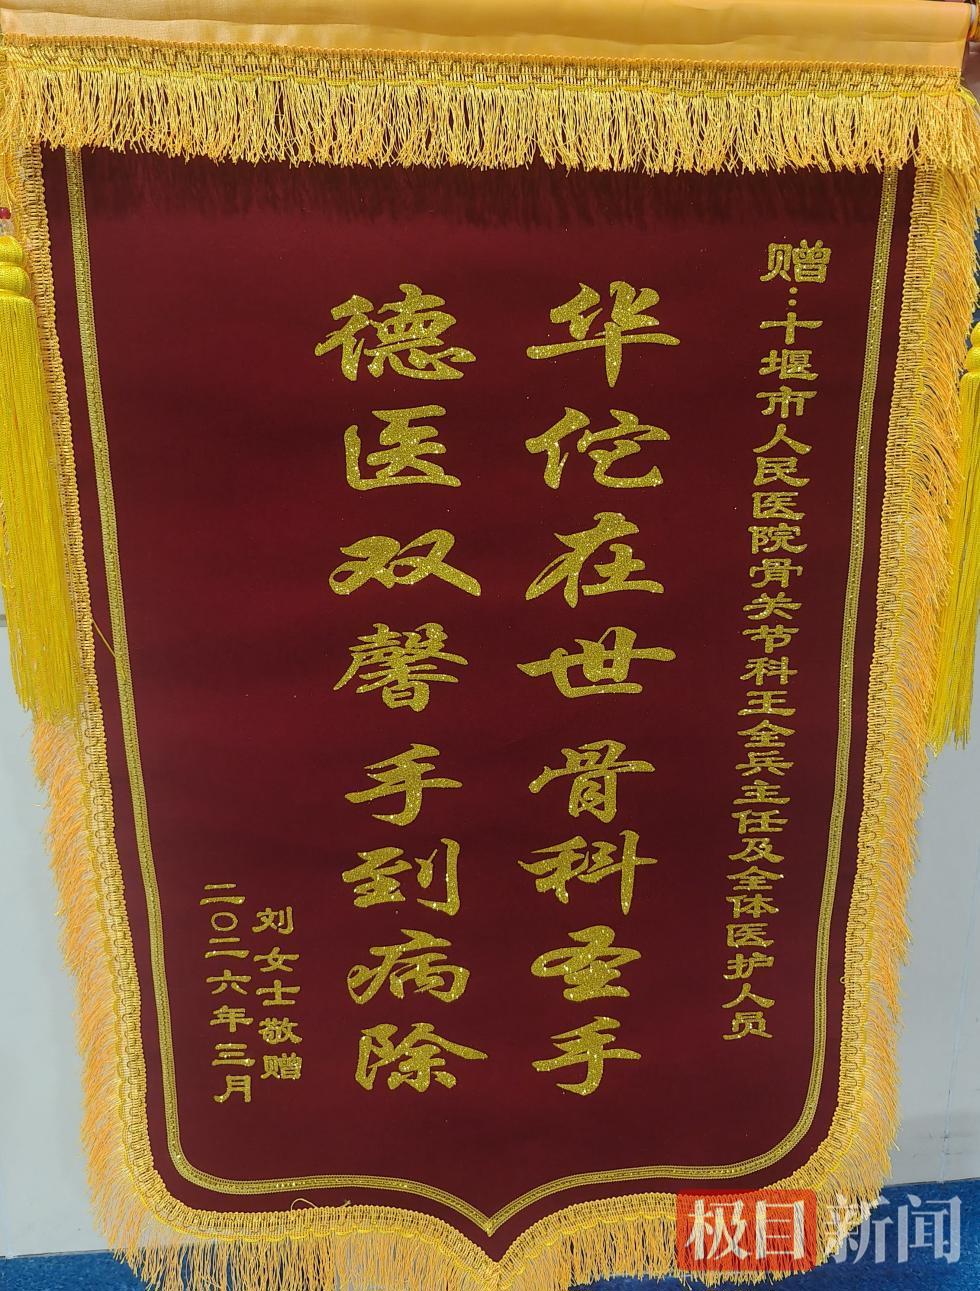 赠:十堰市人民医院骨关节科王全兵主任及全体医护人员
华佗在世骨科圣手
德医双馨手到病除
刘女士敬赠
二〇二六年三月
极目新闻